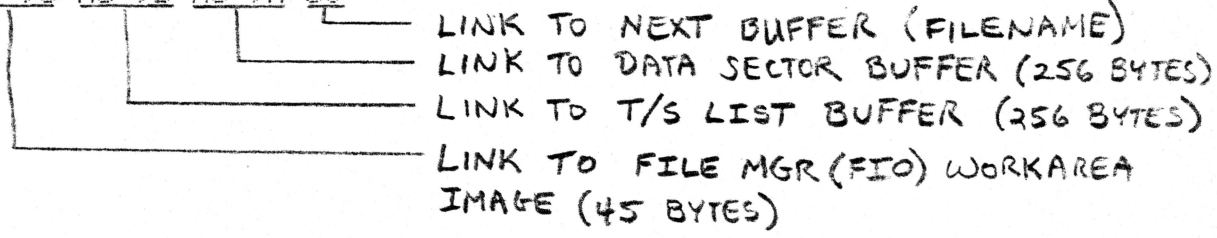 LINK TO NEXT BUFFER (FILENAME)
LINK TO DATA SECTOR BUFFER (256 BYTES)
LINK TO T/S LIST BUFFER (256 BYTES)
LINK TO FILE MGR (FIO) WORKAREA
IMAGE (45 BYTES)